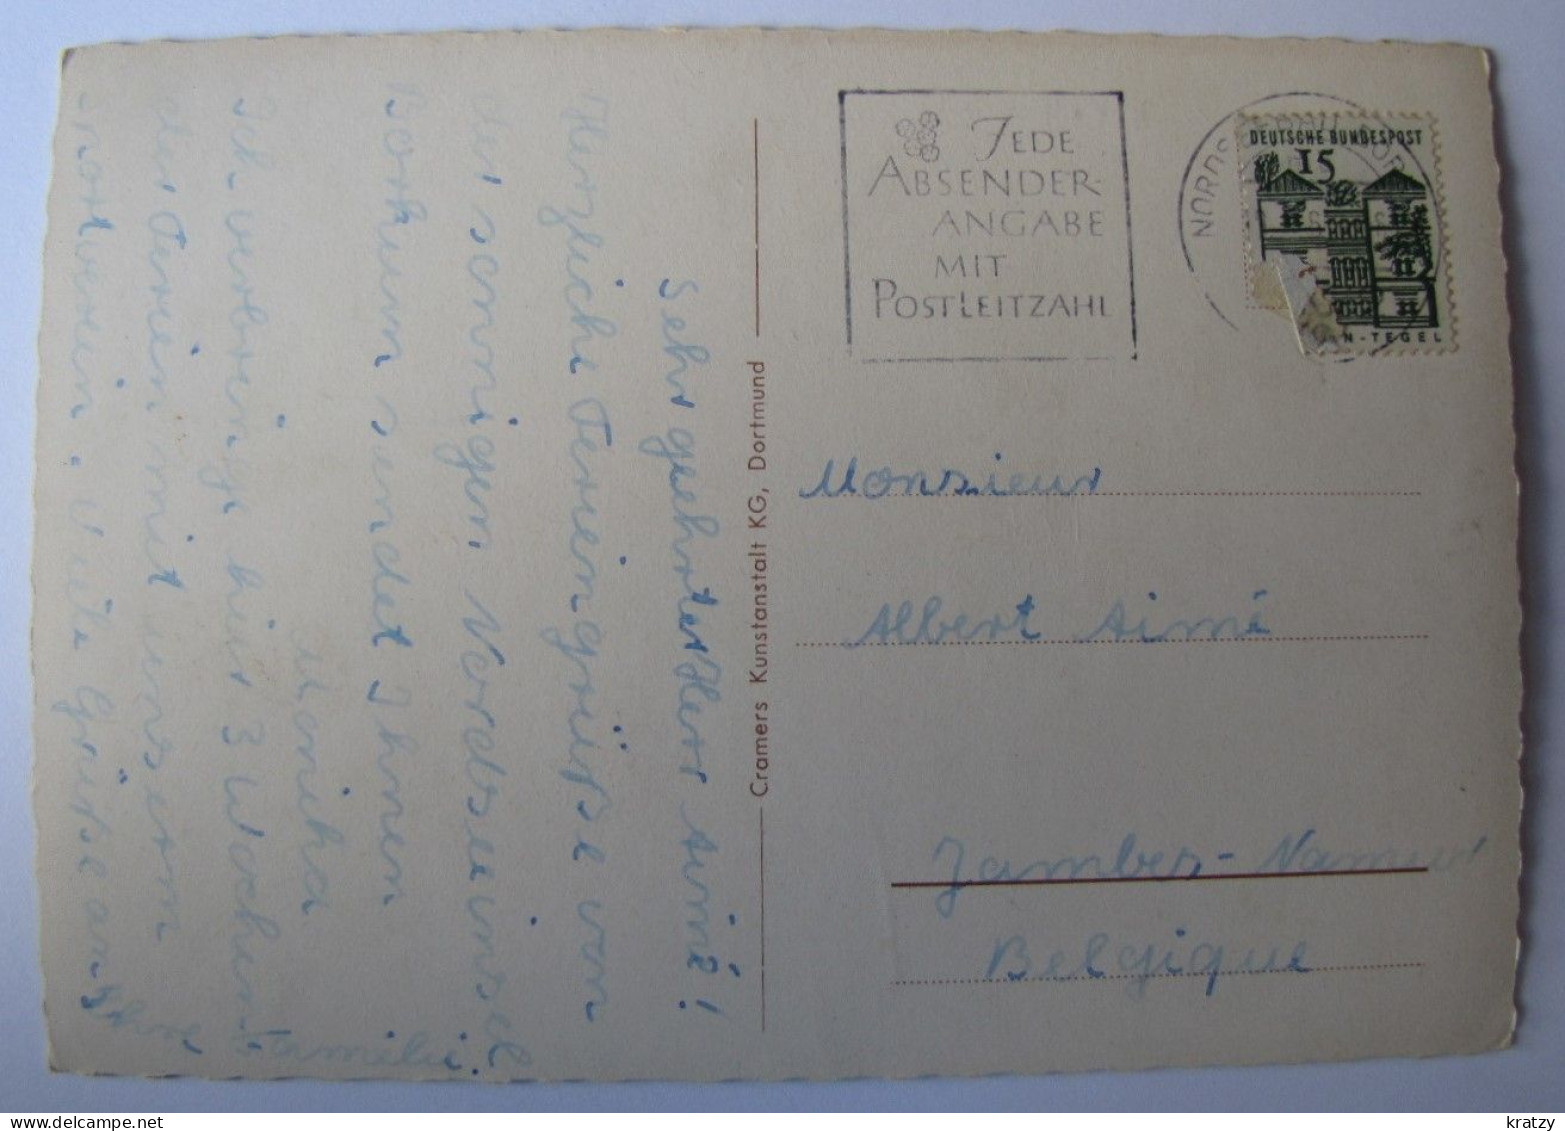 Sehr geehrter Herr Aimé!
Herzliche Feriengrüße von
der sonnigen Nordseeinsel
Borkum sendet Ihnen
Monika
Ich verbringe hier 3 Wochen
der Ferien mit unserm
Sportverein. Viele Grüße an Ihre
Familie.
Cramers Kunstanstalt KG, Dortmund
JEDE
ABSENDER-
ANGABE
MIT
POSTLEITZAHL
DEUTSCHE BUNDESPOST
15
N-TEGEL
Monsieur
Albert Aimé
Jambes-Namur
Belgique
kratzy